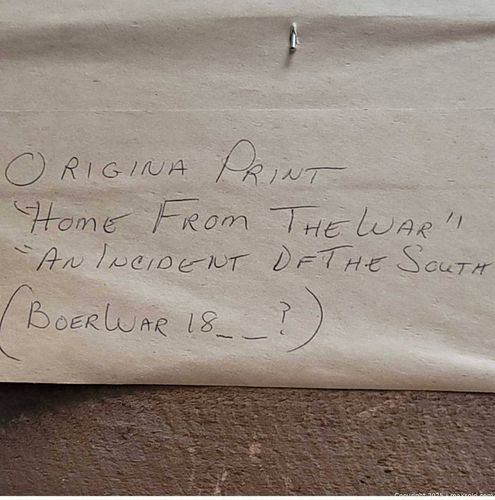 ORIGINA PRINT
"HOME FROM THE WAR"
"AN INCIDENT OF THE SOUTH
(BOER WAR 18__?)